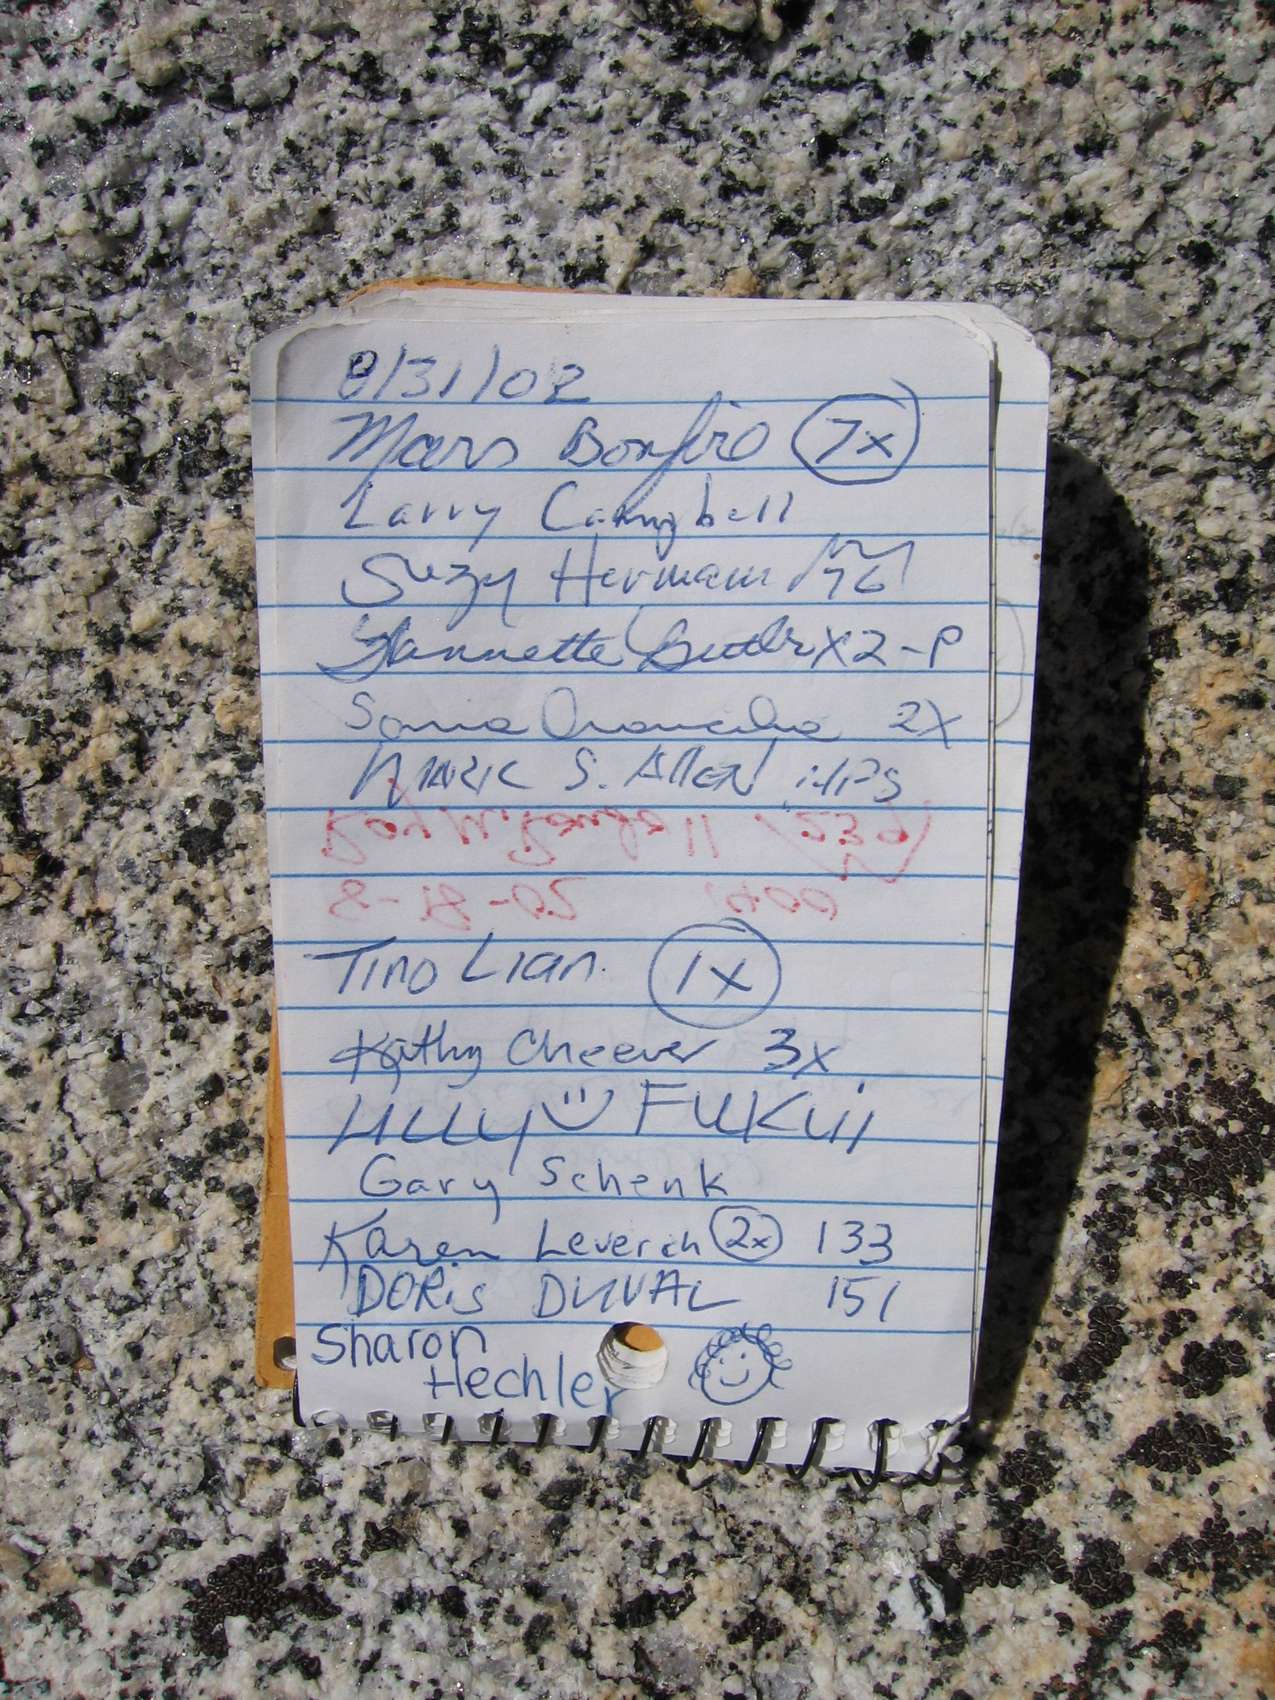 8/31/02
Mars Bonfire 7x
Larry Campbell
Suzy Hermann 76
Jeannette Butler X2-P
Sonia 2X
MARK S. ALLEN HPS
Roy M. Randall 239
8-18-02 1400
Tino Lian. 1x
Kathy Cheever 3x
LILLY FUKUI
Gary Schenk
Karen Leverich 2x 133
DORIS DUVAL 151
Sharon
Hechler